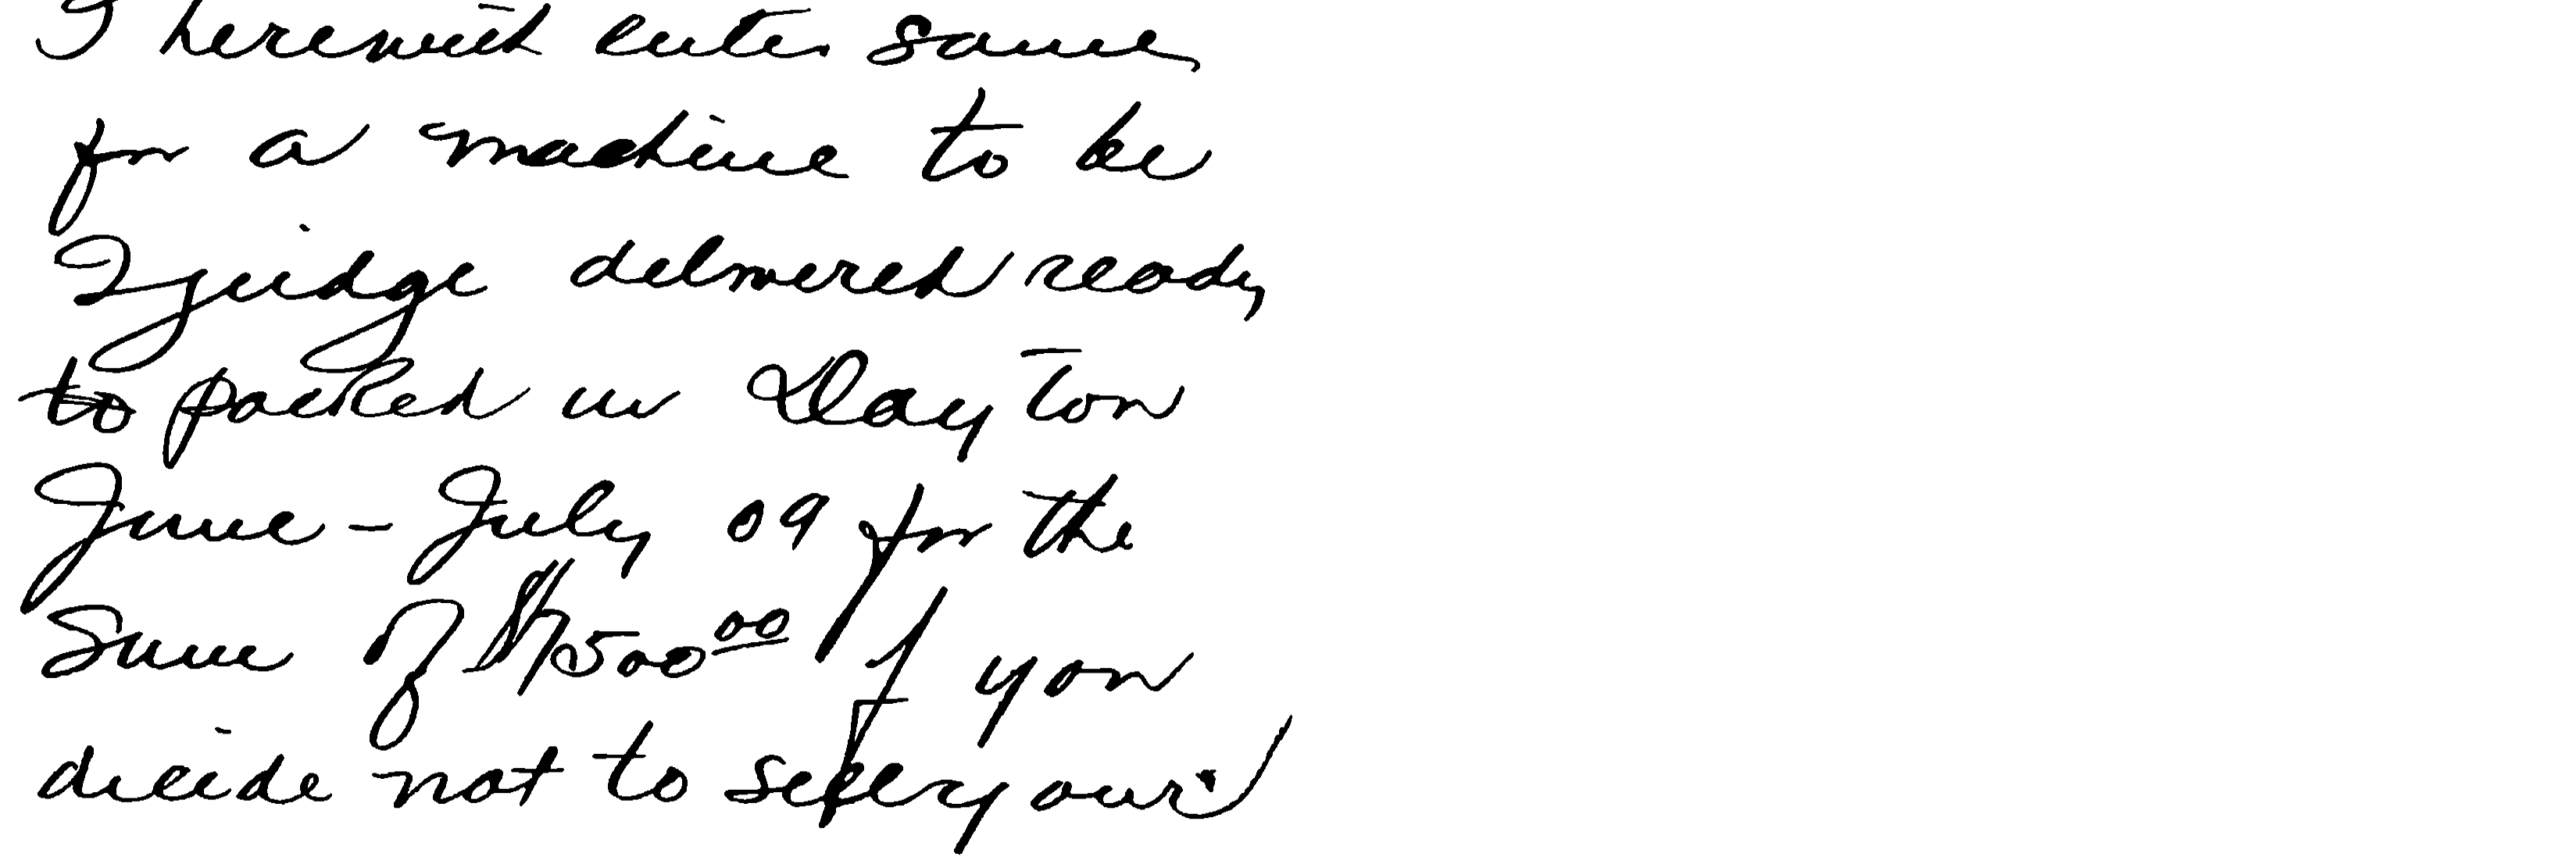 I herewith enter same
for a machine to be
I judge delivered ready
to packed in Dayton
June - July 09 for the
Sum of $750000 If you
decide not to sell your